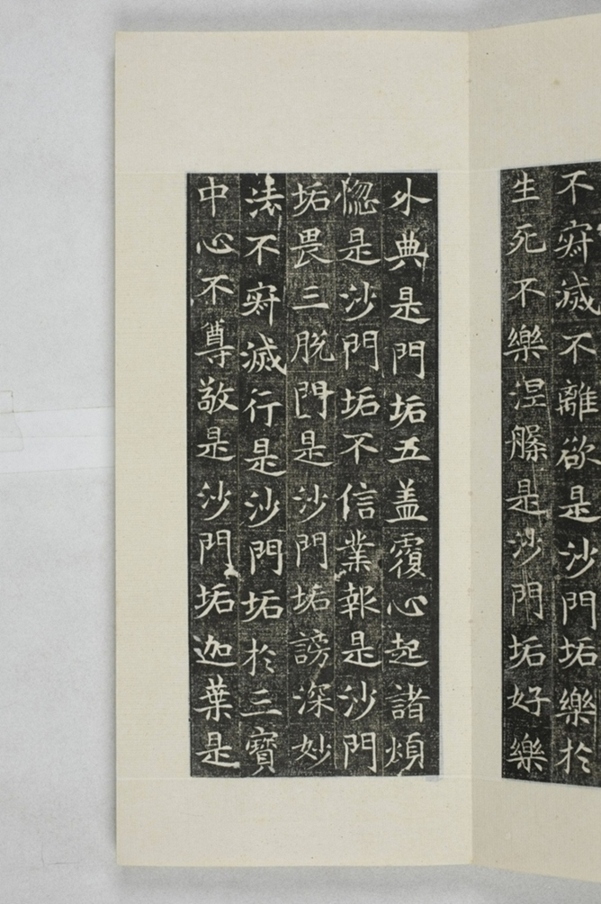 不㝛滅不離欲是沙門垢樂於
生死不樂涅槃是沙門垢好樂
外典是門垢五盖覆心起諸煩
惚是沙門垢不信業報是沙門
垢畏三脱門是沙門垢謗深妙
法不㝛滅行是沙門垢於三寶
中心不尊敬是沙門垢迦葉是